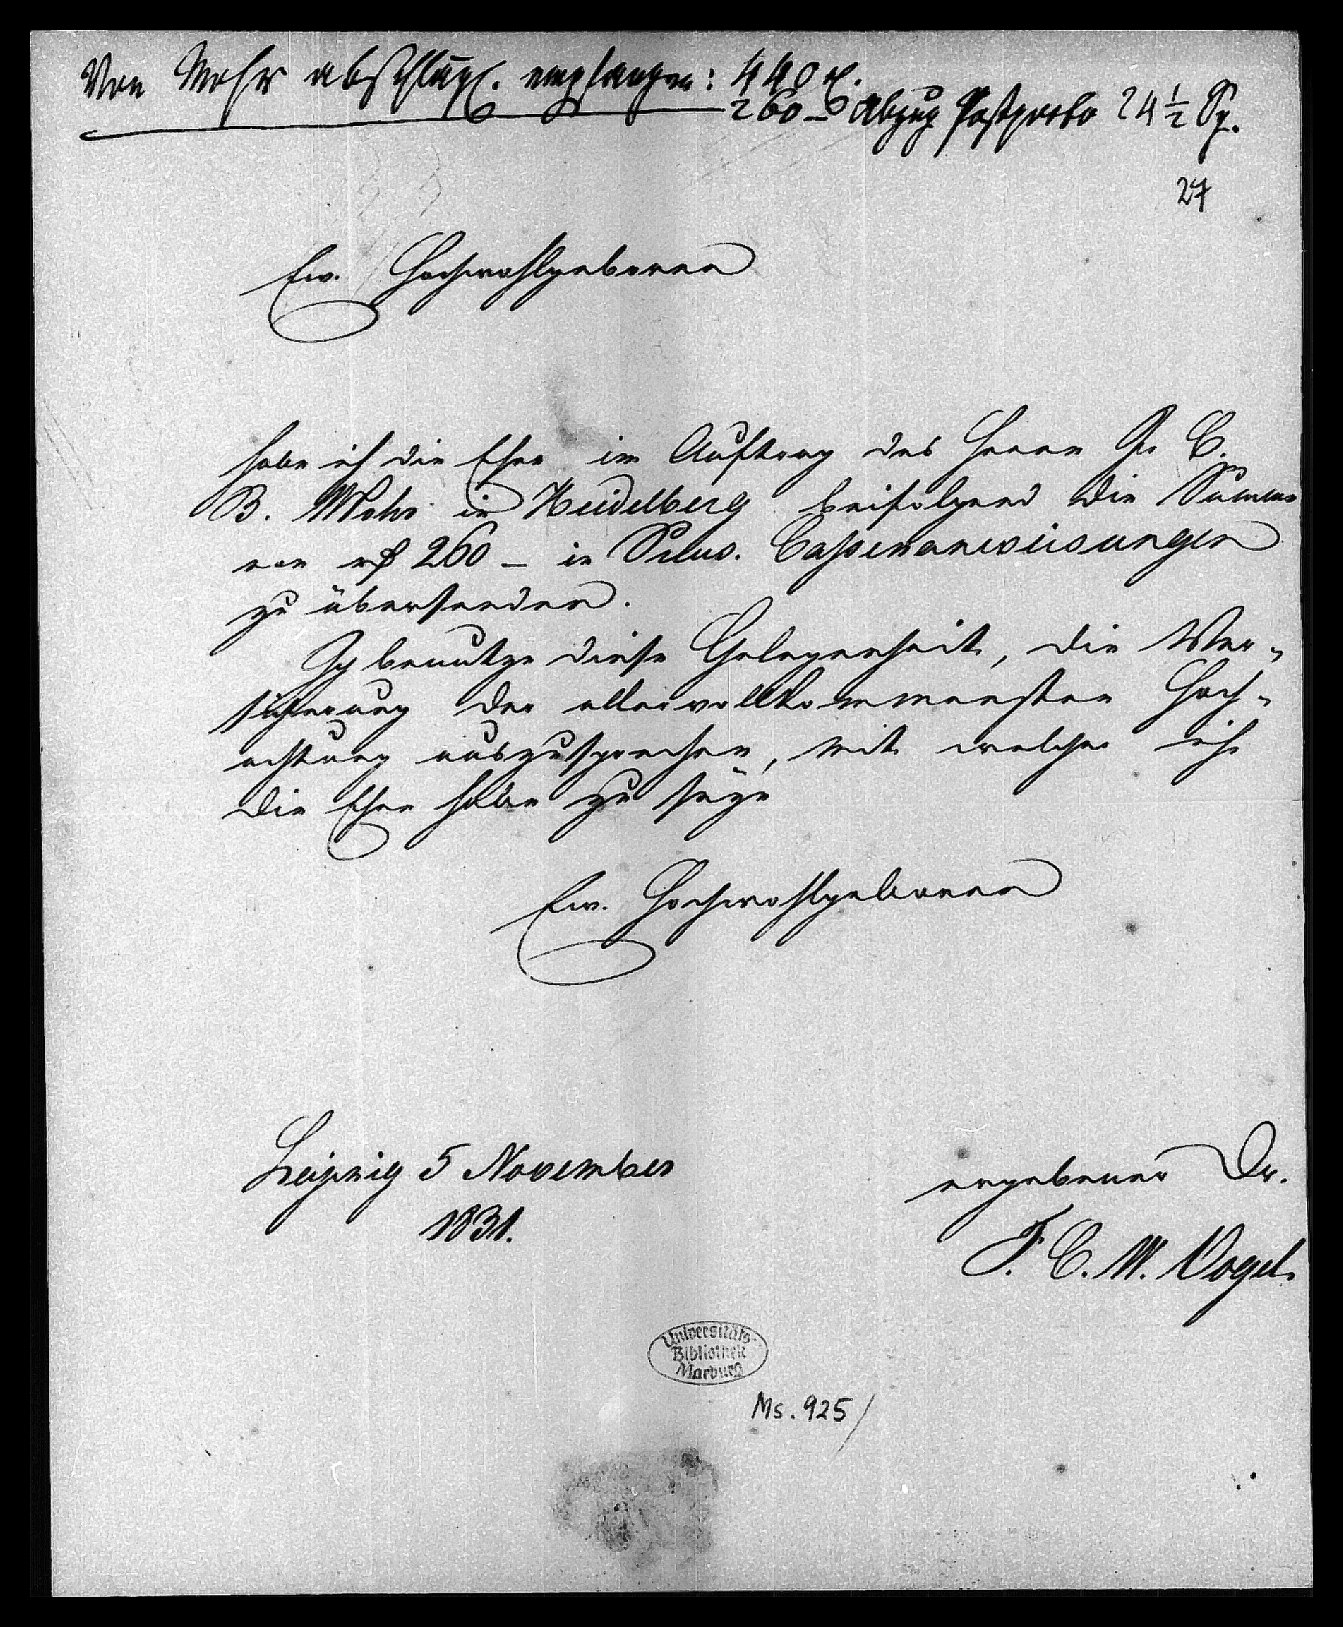 Von Mohr abschlägl. empfangen: 440 rl.
260 – Abzug Postporto 24 1/2 Sgr.
27
Ew. Hochwohlgeboren
habe ich die Ehre im Auftrag des Herrn J. C.
B. Mohr in Heidelberg beifolgend die Summe
von rℓ 260 – in Preus. Cassenanweisungen
zu übersenden.
Ich benutze diese Gelegenheit, die Ver-
sicherung der allervollkommensten Hoch-
achtung auszusprechen, mit welcher ich
die Ehre habe zu seyn
Ew. Hochwohlgeboren
Leipzig 5 November
1831.
ergebener Dr.
F. C. W. Vogel.
Universitäts-
Bibliothek
Marburg
Ms. 925/